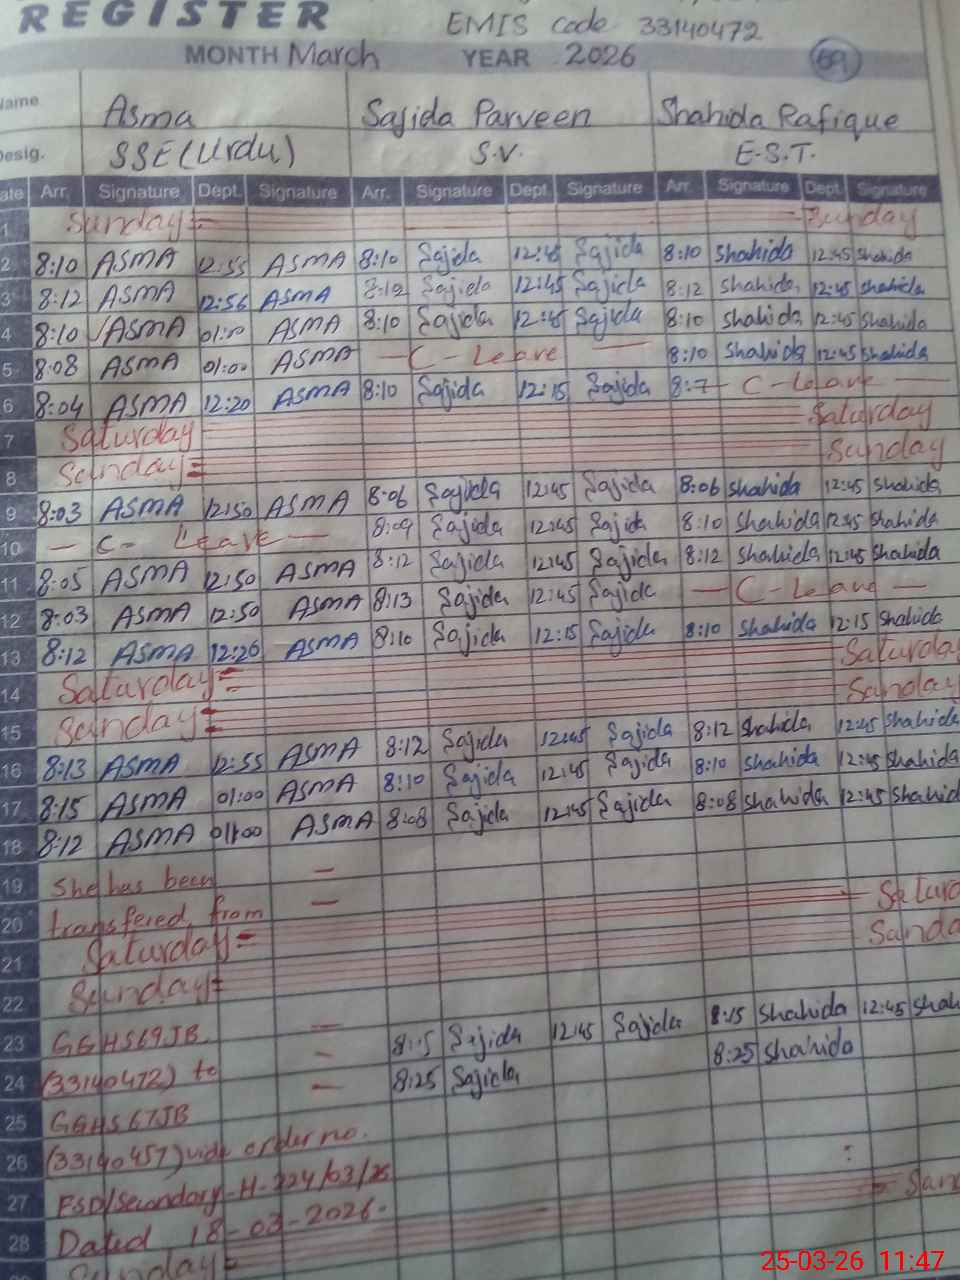 REGISTER EMIS code 33140472
MONTH March YEAR 2026 69
Name Asma Sajida Parveen Shahida Rafique
Desig. SSE(Urdu) S.V. E.S.T.
Date Arr. Signature Dept. Signature Arr. Signature Dept. Signature Arr. Signature Dept. Signature
1 Sunday Sunday
2 8:10 ASMA 12:55 ASMA 8:10 Sajida 12:45 Sajida 8:10 Shahida 12:45 Shahida
3 8:12 ASMA 12:56 ASMA 8:12 Sajida 12:45 Sajida 8:12 Shahida 12:45 Shahida
4 8:10 ASMA 01:00 ASMA 8:10 Sajida 12:45 Sajida 8:10 Shahida 12:45 Shahida
5 8:08 ASMA 01:00 ASMA C-Leave 8:10 Shahida 12:45 Shahida
6 8:04 ASMA 12:20 ASMA 8:10 Sajida 12:15 Sajida 8:7 C-Leave
7 Saturday Saturday
8 Sunday Sunday
9 8:03 ASMA 12:50 ASMA 8:06 Sajida 12:45 Sajida 8:06 Shahida 12:45 Shahida
10 C-Leave 8:09 Sajida 12:45 Sajida 8:10 Shahida 12:45 Shahida
11 8:05 ASMA 12:50 ASMA 8:12 Sajida 12:45 Sajida 8:12 Shahida 12:45 Shahida
12 8:03 ASMA 12:50 ASMA 8:13 Sajida 12:45 Sajida C-Leave
13 8:12 ASMA 12:26 ASMA 8:10 Sajida 12:15 Sajida 8:10 Shahida 12:15 Shahida
14 Saturday Saturday
15 Sunday Sunday
16 8:13 ASMA 12:55 ASMA 8:12 Sajida 12:45 Sajida 8:12 Shahida 12:45 Shahida
17 8:15 ASMA 01:00 ASMA 8:10 Sajida 12:45 Sajida 8:10 Shahida 12:45 Shahida
18 8:12 ASMA 01:00 ASMA 8:08 Sajida 12:45 Sajida 8:08 Shahida 12:45 Shahid
19 She has been
20 transfered from
21 Saturday Satur
22 Sunday Sunda
23 GGHS69JB. 8:15 Sajida 12:45 Sajida 8:15 Shahida 12:45 Shah
24 (33140472) to 8:25 Sajida 8:25 Shahida
25 GGHS67JB
26 (33140457) vide order no.
27 FSD/Secondary-H-224/03/26
28 Dated 18-03-2026. Sun
Sunday
25-03-26 11:47